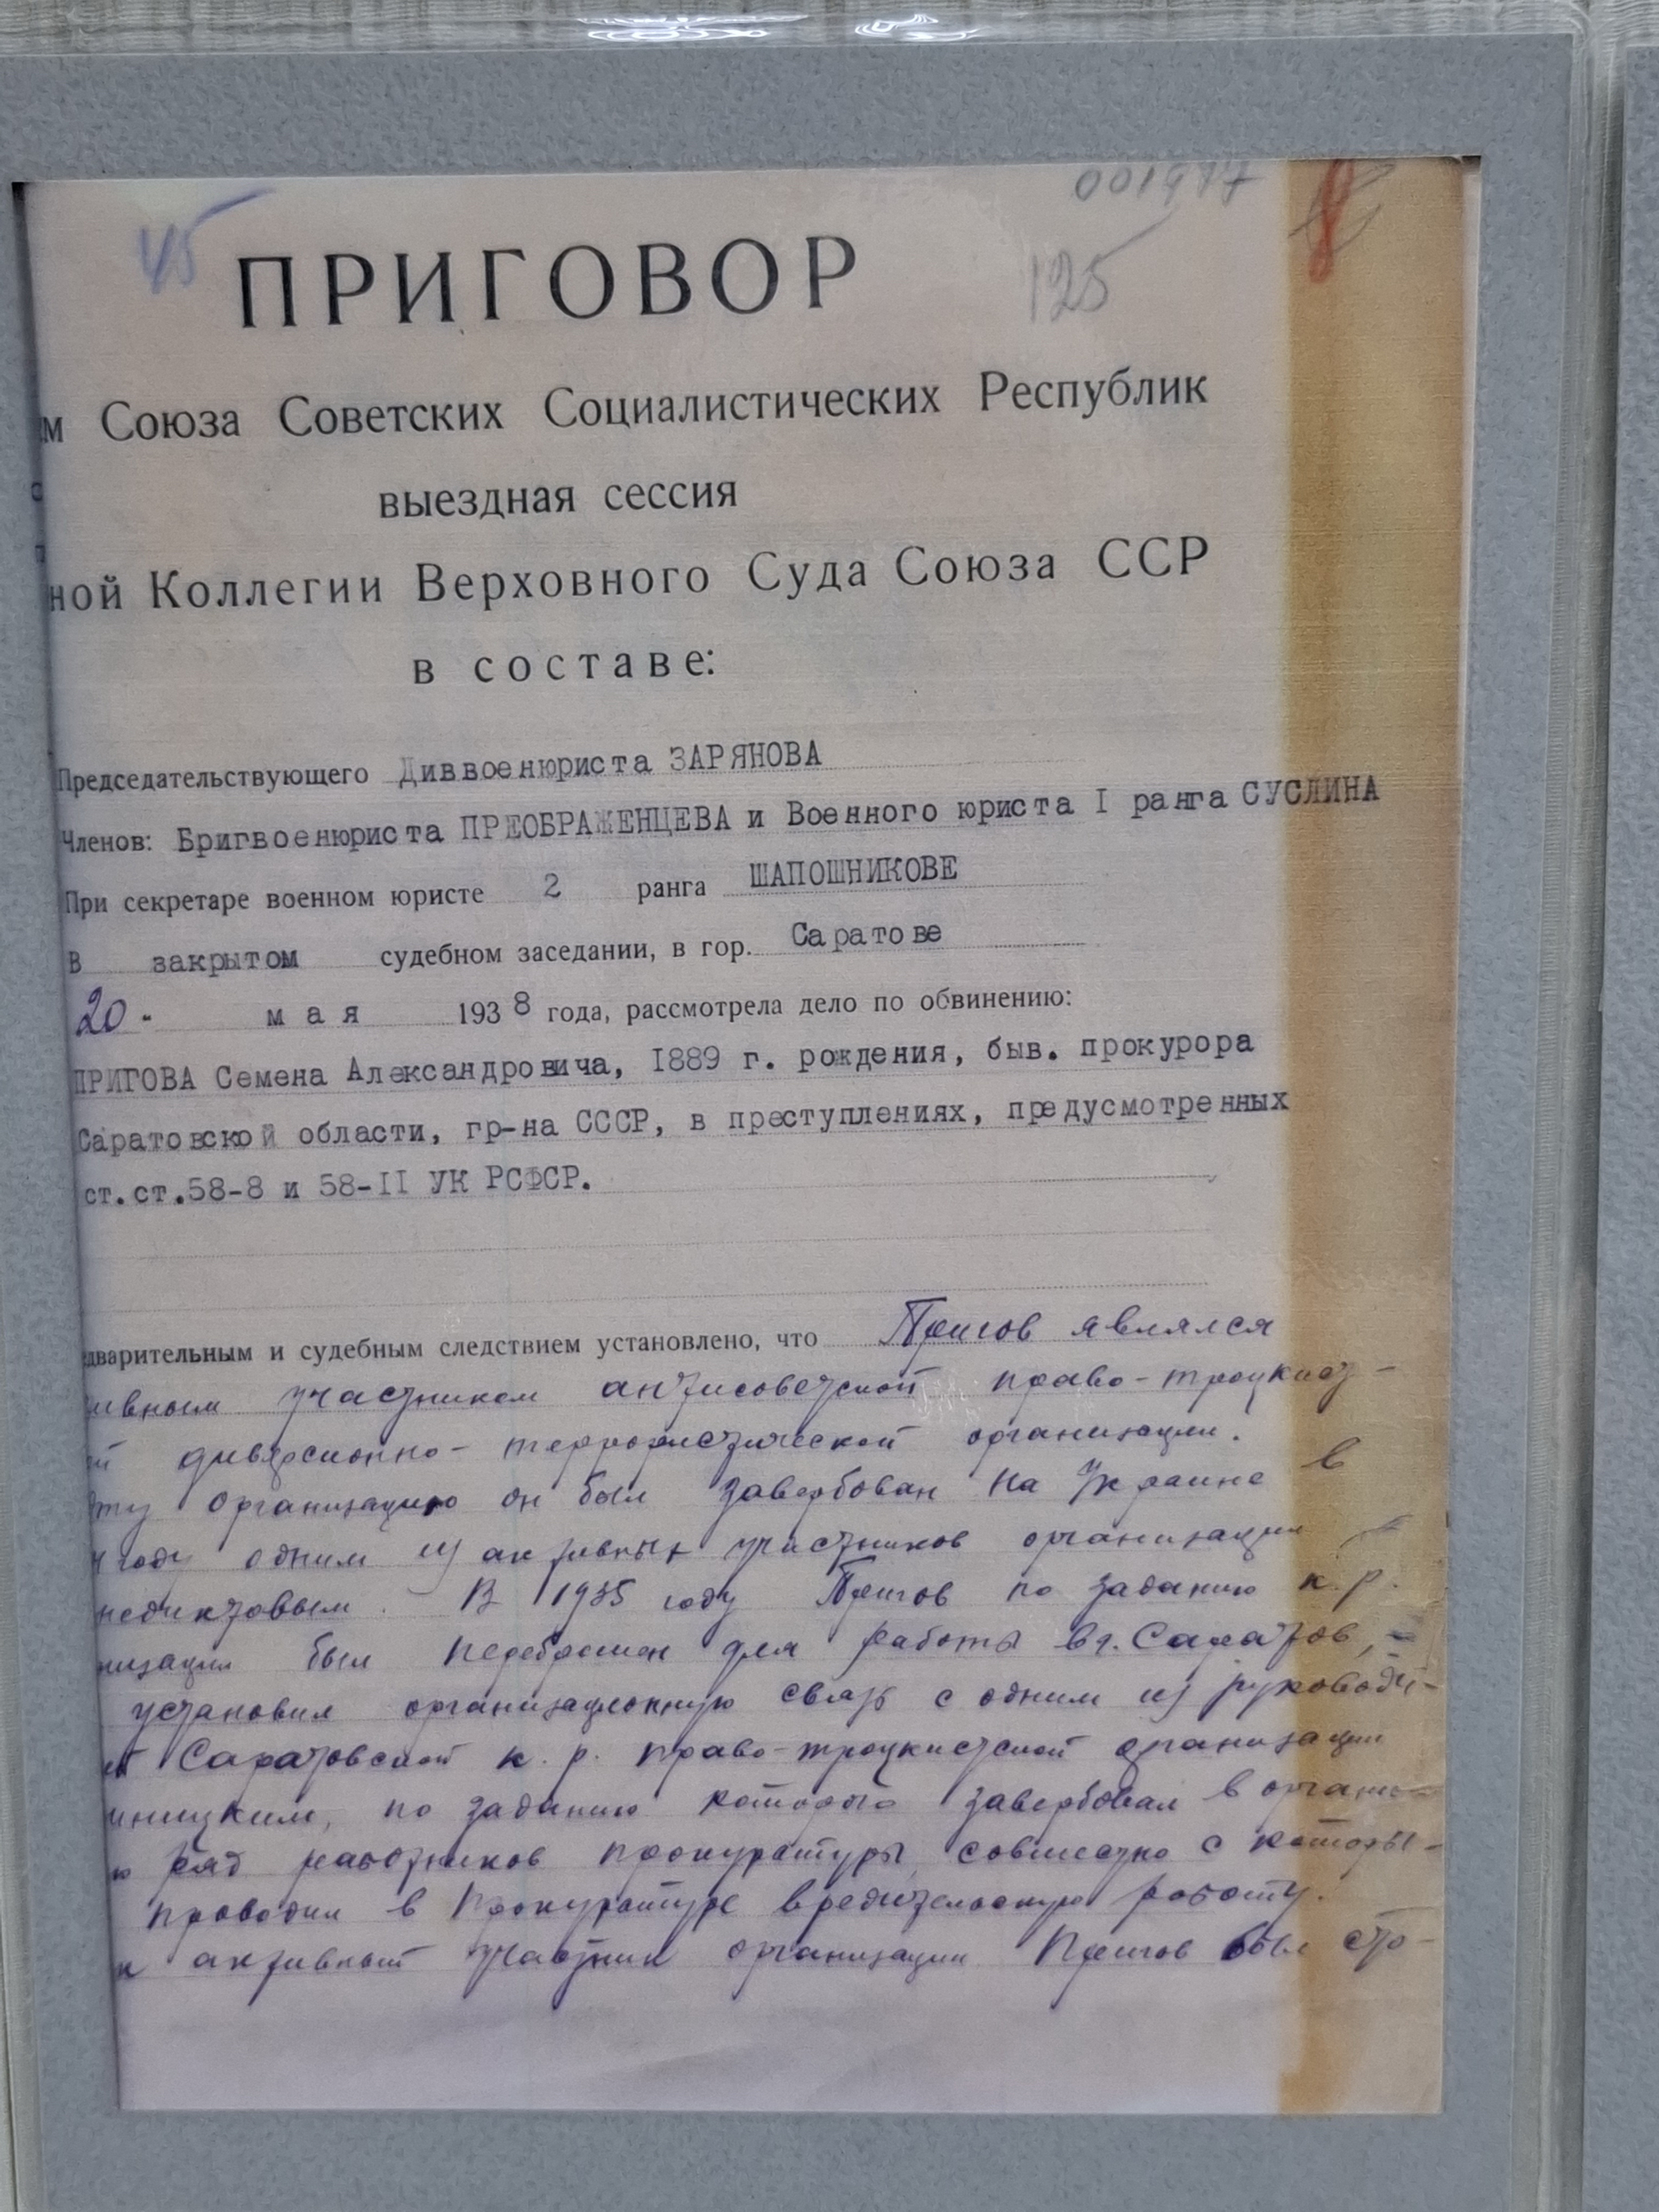 45
125
8
ПРИГОВОР
м Союза Советских Социалистических Республик
выездная сессия
ной Коллегии Верховного Суда Союза ССР
в составе:
Председательствующего Диввоенюриста ЗАРЯНОВА
Членов: Бригвоенюриста ПРЕОБРАЖЕНЦЕВА и Военного юриста I ранга СУСЛИНА
При секретаре военном юристе 2 ранга ШАПОШНИКОВЕ
В закрытом судебном заседании, в гор. Саратове
20- мая 1938 года, рассмотрела дело по обвинению:
ПРИГОВА Семена Александровича, I889 г. рождения, быв. прокурора
Саратовской области, гр-на СССР, в преступлениях, предусмотренных
ст.ст.58-8 и 58-II УК РСФСР.
дварительным и судебным следствием установлено, что Пригов являлся
ивным участником антисоветской право-троцкист-
й диверсионно-террористической организации.
ту организацию он был завербован на Украине в
году одним из активных участников организации
недиктовым. В 1935 году Пригов по заданию к.р.
низации был переброшен для работы в г. Саратов,
установил организационную связь с одним из руководи-
й Саратовской к.р. право-троцкистской организации
иницким, по заданию которого завербовал в органи-
ю ряд работников прокуратуры, совместно с которы-
проводил в Прокуратуре вредительскую работу.
к активный участник организации Пригов был сто-